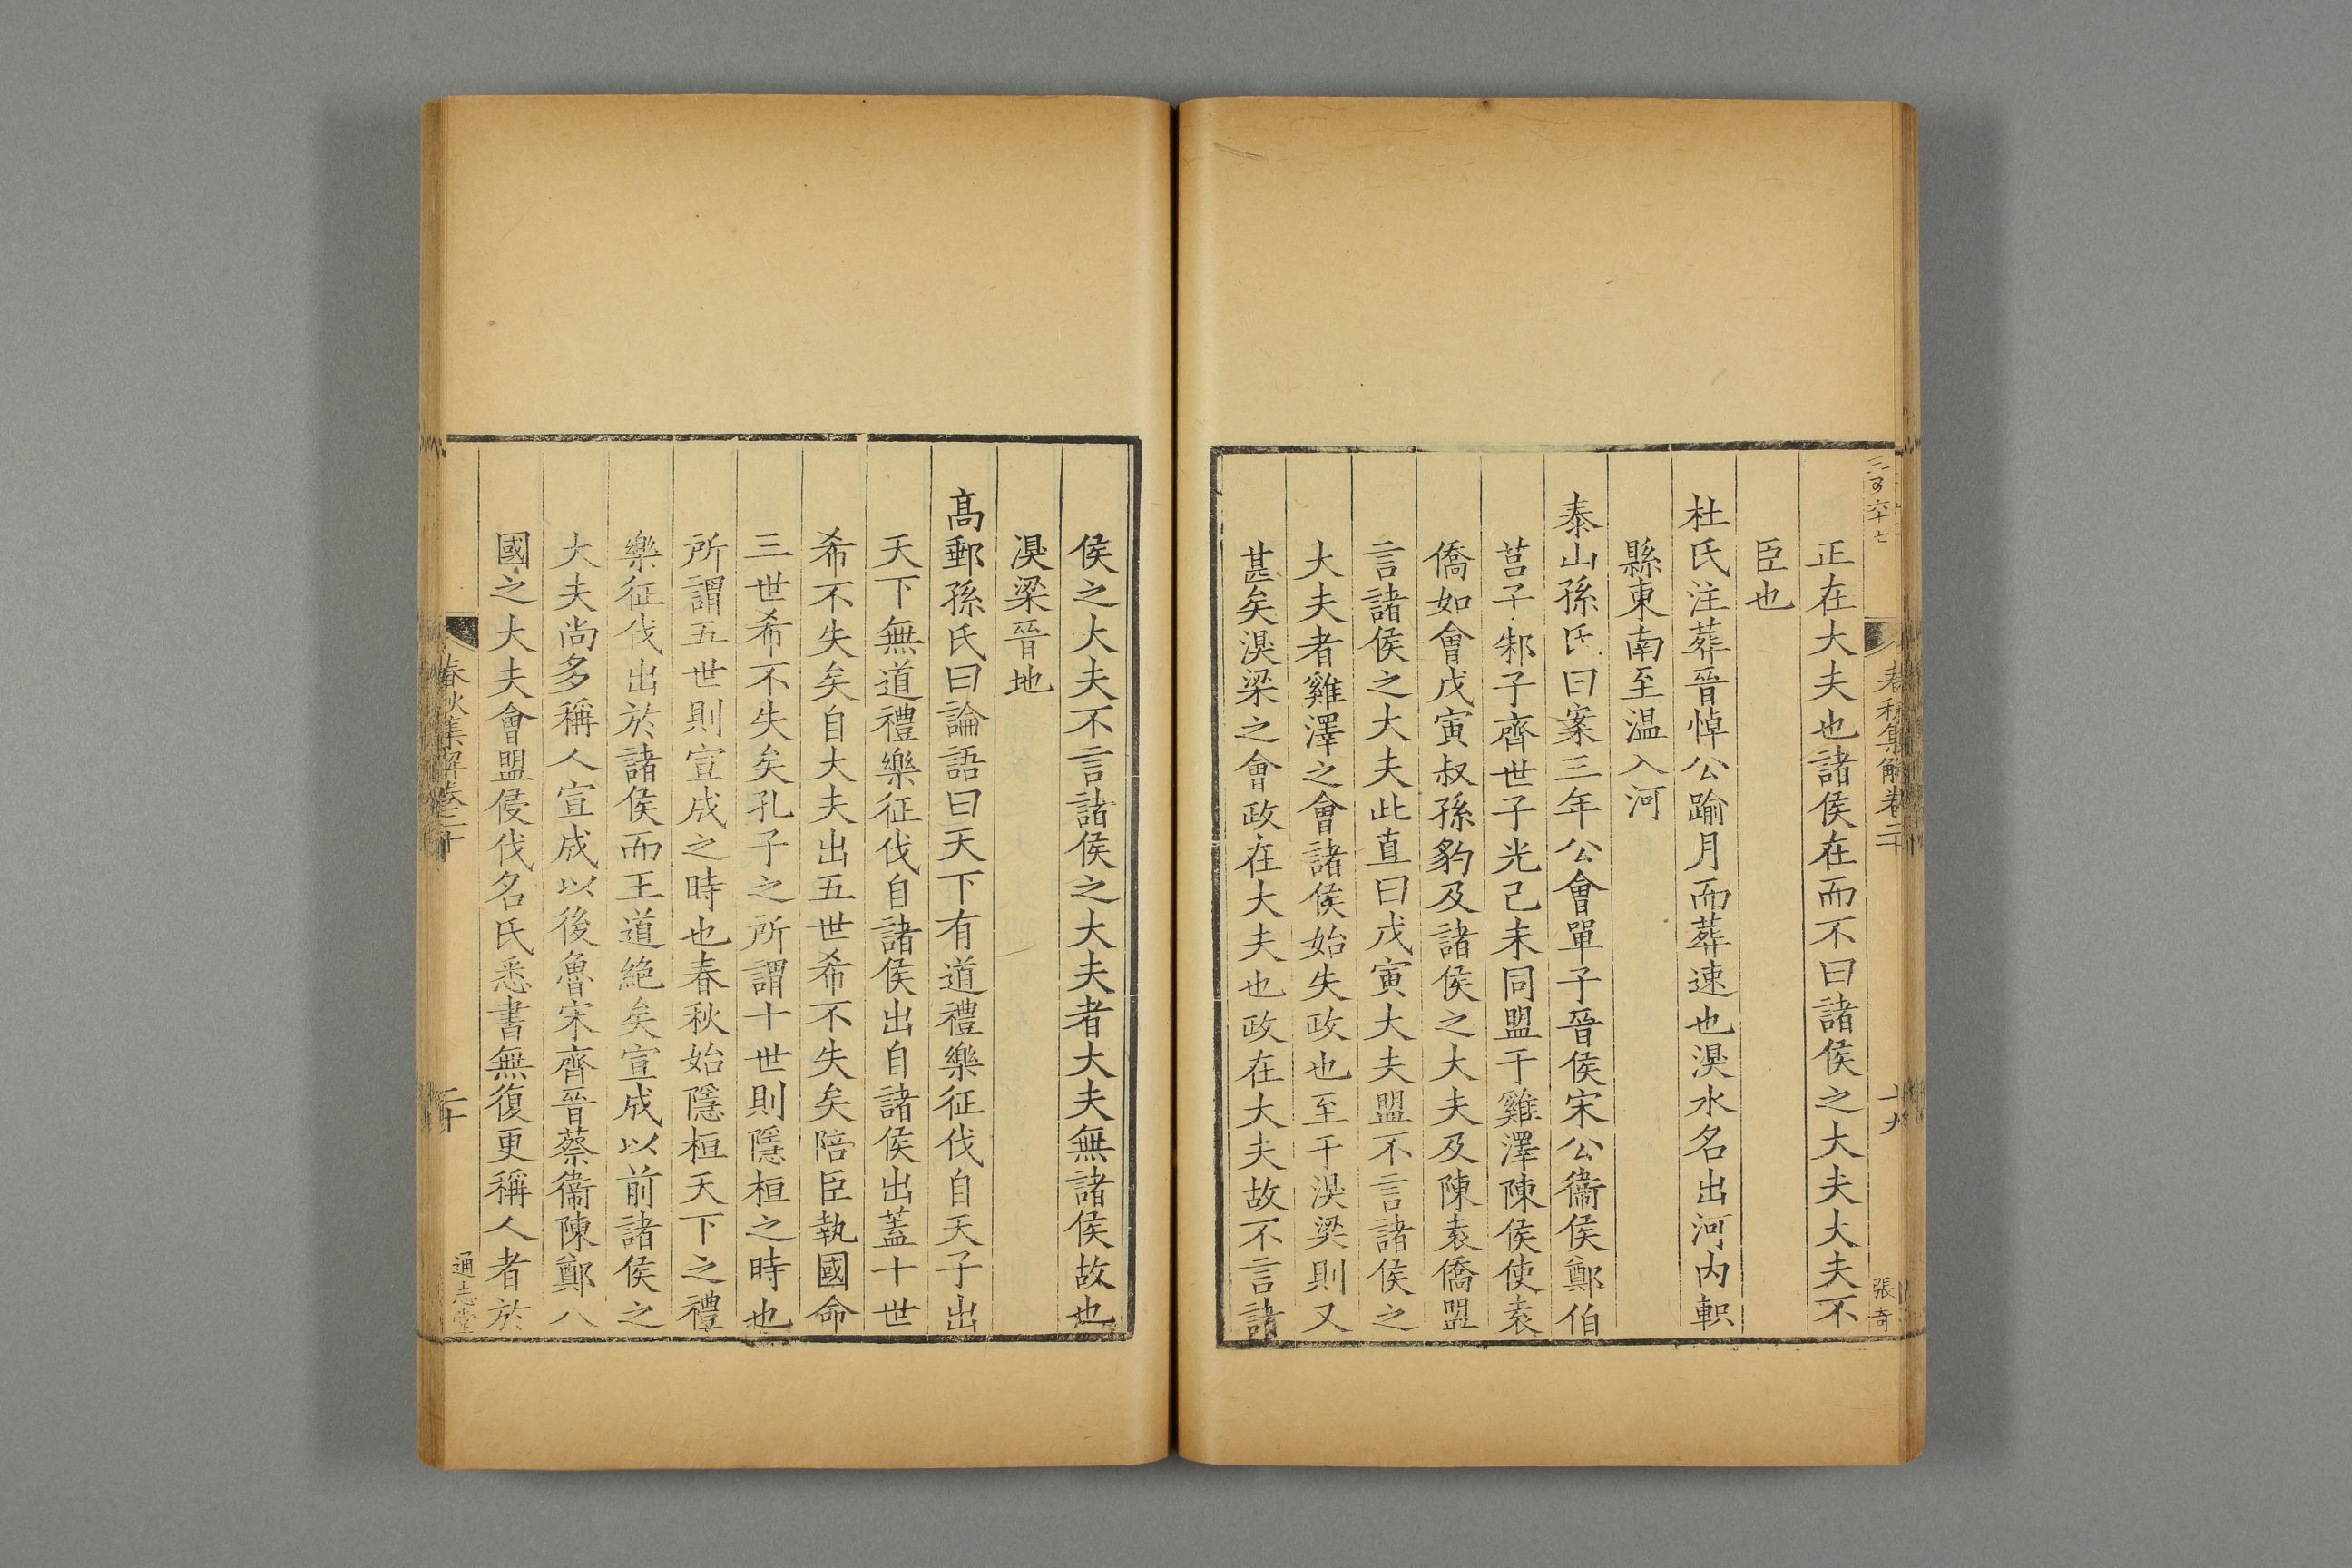 三百六十七
春秋集解卷二十
十九
張奇
正在大夫也諸侯在而不曰諸侯之大夫大夫不
臣也
杜氏注葬晉悼公踰月而葬速也湨水名出河内軹
縣東南至温入河
泰山孫氏曰案三年公會單子晉侯宋公衞侯鄭伯
莒子邾子齊世子光己未同盟于雞澤陳侯使袁
僑如會戊寅叔孫豹及諸侯之大夫及陳袁僑盟
言諸侯之大夫此直曰戊寅大夫盟不言諸侯之
大夫者雞澤之會諸侯始失政也至于湨梁則又
甚矣湨梁之會政在大夫也政在大夫故不言諸
侯之大夫不言諸侯之大夫者大夫無諸侯故也
湨梁晉地
髙郵孫氏曰論語曰天下有道禮樂征伐自天子出
天下無道禮樂征伐自諸侯出自諸侯出蓋十世
希不失矣自大夫出五世希不失矣陪臣執國命
三世希不失矣孔子之所謂十世則隱桓之時也
所謂五世則宣成之時也春秋始隱桓天下之禮
樂征伐出於諸侯而王道絶矣宣成以前諸侯之
大夫尚多稱人宣成以後魯宋齊晉蔡衞陳鄭八
國之大夫會盟侵伐名氏悉書無復更稱人者於
春秋集解卷二十
二十
通志堂